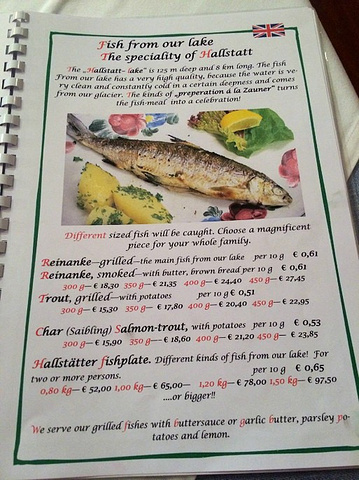 Fish from our lake
The speciality of Hallstatt
The „Hallstatt- lake" is 125 m deep and 8 km long. The fish
From our lake has a very high quality, because the water is ve-
ry clean and constantly cold in a certain deepness and comes
from our glacier. The kinds of „preperation á la Zauner" turns
the fish-meal into a celebration!
Different sized fish will be caught. Choose a magnificent
piece for your whole family.
Reinanke—grilled—the main fish from our lake per 10 g € 0,61
Reinanke, smoked—with butter, brown bread per 10 g € 0,61
300 g—€ 18,30 350 g—€ 21,35 400 g—€ 24,40 450 g—€ 27,45
Trout, grilled—with potatoes per 10 g € 0,51
300 g—€ 15,30 350 g—€ 17,80 400 g—€ 20,40 450 g—€ 22,95
Char (Saibling) Salmon-trout, with potatoes per 10 g € 0,53
300 g—€ 15,90 350 g—€ 18,60 400 g—€ 21,20 450 g—€ 23,85
Hallstätter fishplate. Different kinds of fish from our lake! For
two or more persons. per 10 g € 0,65
0,80 kg—€ 52,00 1,00 kg—€ 65,00— 1,20 kg—€ 78,00 1,50 kg—€ 97,50
....or bigger!!
We serve our grilled fishes with buttersauce or garlic butter, parsley po-
tatoes and lemon.